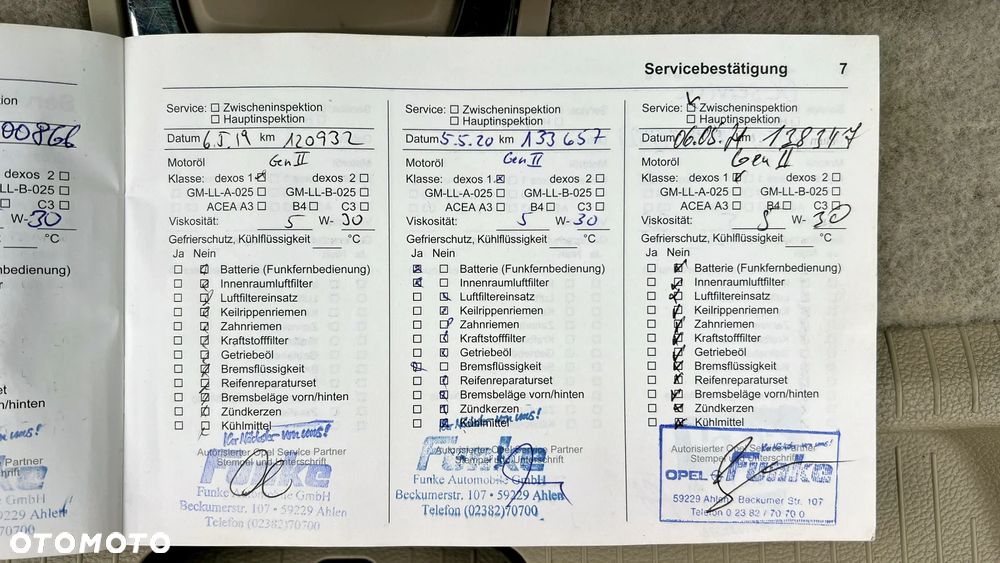 Servicebestätigung 7
Service: Zwischeninspektion
Hauptinspektion
Datum 6.5.19 km 120932
Motoröl Gen II
Klasse: dexos 1 dexos 2
GM-LL-A-025 GM-LL-B-025
ACEA A3 B4 C3
Viskosität: 5 W- 30
Gefrierschutz, Kühlflüssigkeit °C
Ja Nein
Batterie (Funkfernbedienung)
Innenraumluftfilter
Luftfiltereinsatz
Keilrippenriemen
Zahnriemen
Kraftstofffilter
Getriebeöl
Bremsflüssigkeit
Reifenreparaturset
Bremsbeläge vorn/hinten
Zündkerzen
Kühlmittel
Ihr Nächster von uns!
Autorisierter Opel Service Partner
Stempel und Unterschrift
Funke
Funke Automobile GmbH
Beckumerstr. 107 • 59229 Ahlen
Telefon (02382)70700
Service: Zwischeninspektion
Hauptinspektion
Datum 5.5.20 km 133657
Motoröl Gen II
Klasse: dexos 1 dexos 2
GM-LL-A-025 GM-LL-B-025
ACEA A3 B4 C3
Viskosität: 5 W- 30
Gefrierschutz, Kühlflüssigkeit °C
Ja Nein
Batterie (Funkfernbedienung)
Innenraumluftfilter
Luftfiltereinsatz
Keilrippenriemen
Zahnriemen
Kraftstofffilter
Getriebeöl
Bremsflüssigkeit
Reifenreparaturset
Bremsbeläge vorn/hinten
Zündkerzen
Kühlmittel
Autorisierter Opel Service Partner
Stempel und Unterschrift
Funke
Funke Automobile GmbH
Beckumerstr. 107 • 59229 Ahlen
Telefon (02382)70700
Service: Zwischeninspektion
Hauptinspektion
Datum km 138347
Motoröl Gen II
Klasse: dexos 1 dexos 2
GM-LL-A-025 GM-LL-B-025
ACEA A3 B4 C3
Viskosität: 5 W- 30
Gefrierschutz, Kühlflüssigkeit °C
Ja Nein
Batterie (Funkfernbedienung)
Innenraumluftfilter
Luftfiltereinsatz
Keilrippenriemen
Zahnriemen
Kraftstofffilter
Getriebeöl
Bremsflüssigkeit
Reifenreparaturset
Bremsbeläge vorn/hinten
Zündkerzen
Kühlmittel
Autorisierter Opel Service Partner
Stempel und Unterschrift
OPEL Funke
59229 Ahlen Beckumer Str. 107
Telefon 0 23 82 / 70 70 0
OTOMOTO